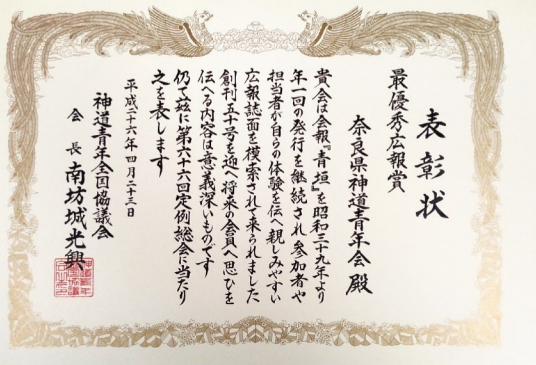 表彰状
最優秀広報賞
奈良県神道青年会 殿
貴会は会報『青垣』を昭和三十九年より
年一回の発行を継続され 参加者や
担当者が自らの体験を伝へ親しみやすい
広報誌面を模索されて来られました
創刊五十号を迎へ将来の会員へ思ひを
伝へる内容は意義深いものです
仍て茲に第六十六回定例総会に当たり
之を表します
平成二十六年四月二十三日
神道青年全国協議会
会長 南坊城光興